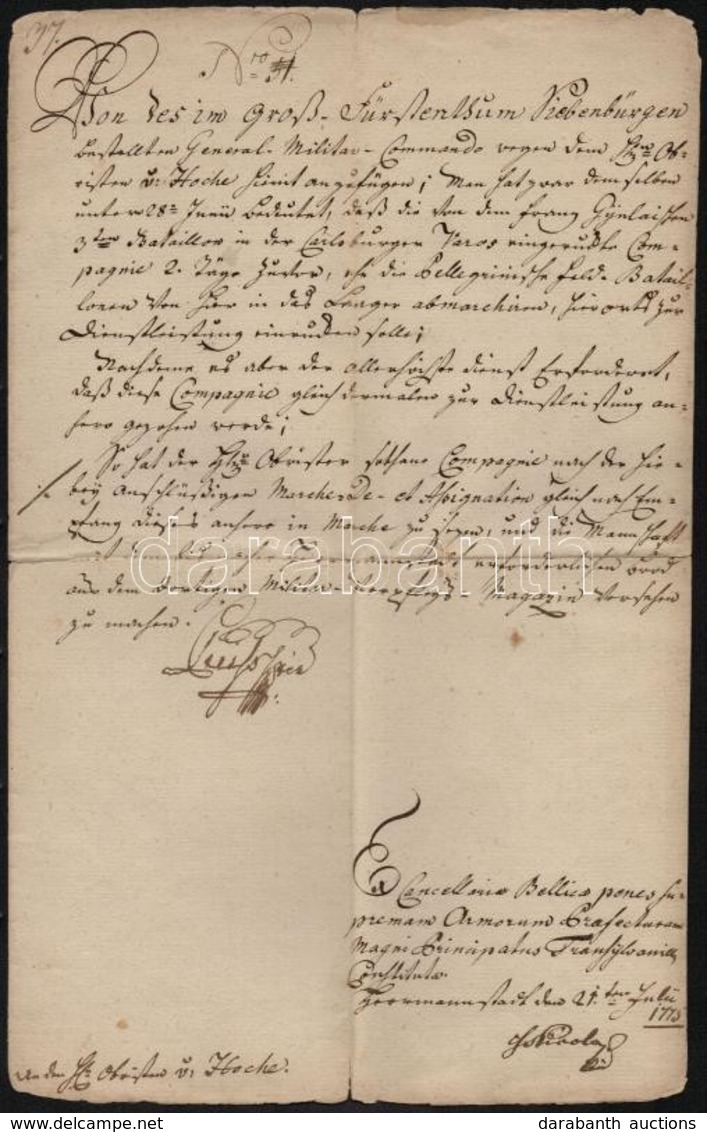 37.
Nro 31.
Von des im Groß-Fürstenthum Siebenbürgen
bestellten General-Militar-Commando wegen dem Hrn Ob-
risten v: Hoche hiemit anzufügen; Man hat zwar demselben
unterm 28n Juny bedeutet, daß die von dem Franz Gyulaischen
3ten Bataillon in der Carlsburger Varos eingeruckte Com-
pagnie 2. Täge zuvor, ehe die Pellegrinische Feld-Batail-
lonen von hier in das Laager abmarchiren, hierorts zur
Dienstleistung einrucken solle;
Nachdeme es aber der allerhöchste Dienst erforderet,
daß diese Compagnie gleich dermalen zur Dienstleistung an-
hero gezohen werde;
So hat der Hr Obrister sothane Compagnie nach der hie-
bey anschlüßigen Marche-Rte et Assignation gleich nach Em-
pfang dieses anhero in Marche zu sezen, und die Mannschaft
erforderlichen Brod
aus dem dortigen Militar-Verpflegs-Magazin versehen
zu machen.
darabanth
Ex Cancellaria Bellica penes su-
premam Armorum Præfecturam
Magni Principatus Transylvaniæ
Constituta.
Herrmannstadt den 21.ten July
1775
An den Hr Obristen v: Hoche.
darabanth auctions